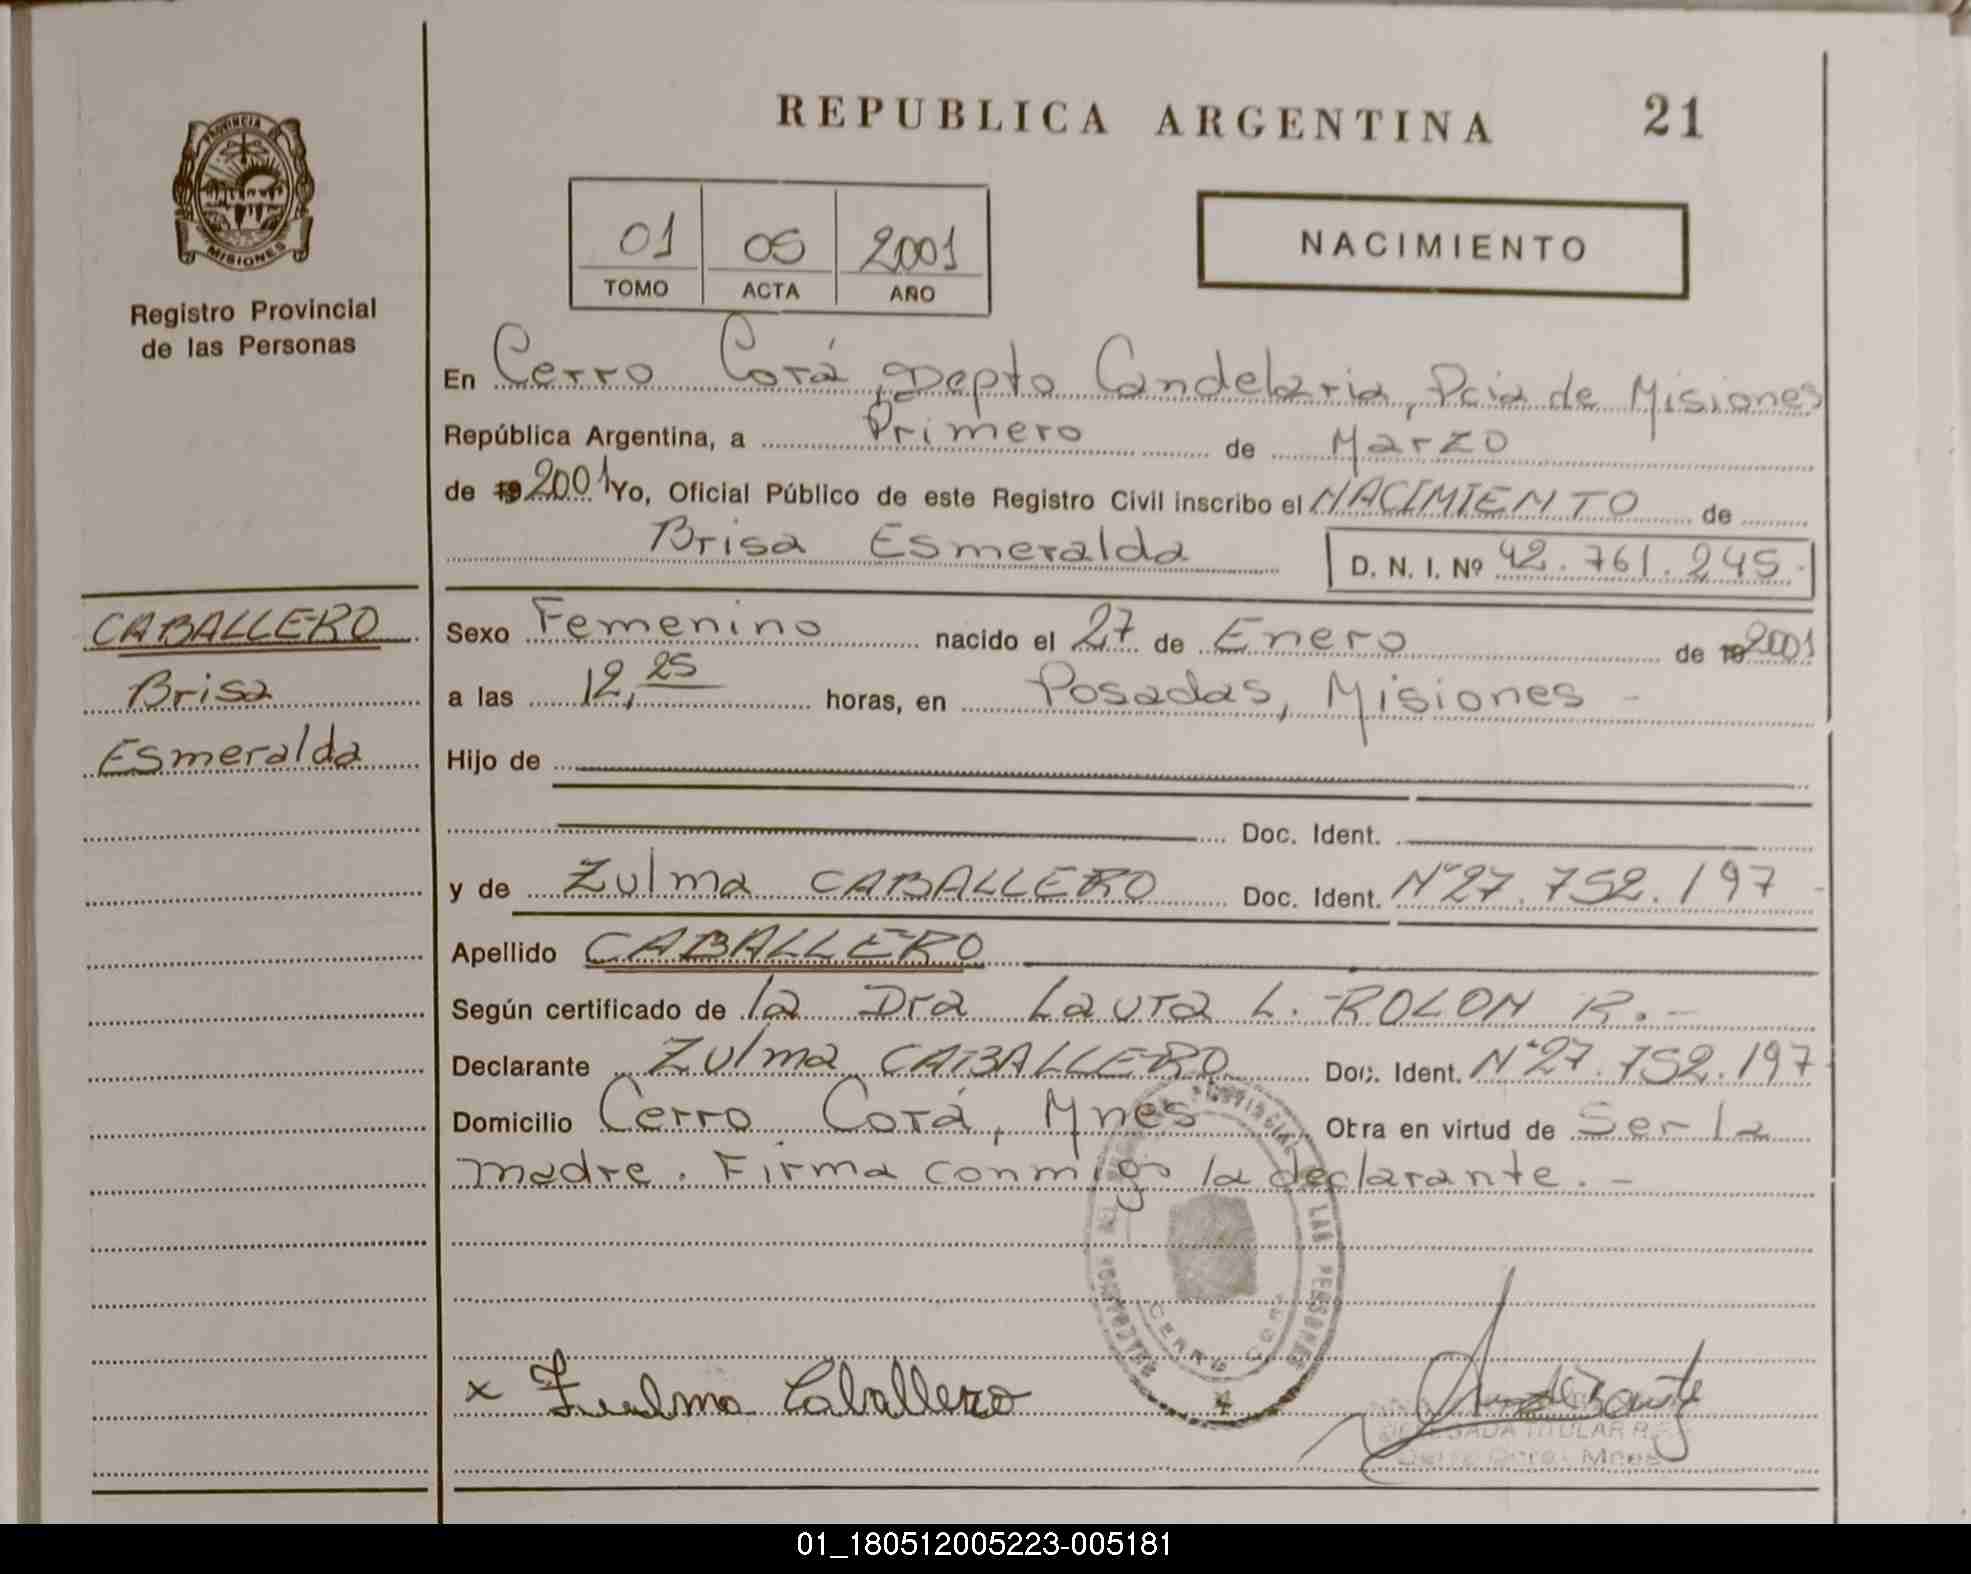 PROVINCIA DE
MISIONES
Registro Provincial
de las Personas
REPUBLICA ARGENTINA 21
01 05 2001
TOMO ACTA AÑO
NACIMIENTO
En Cerro Corá, Depto Candelaria, Pcia de Misiones
República Argentina, a Primero de Marzo
de 19 2001 Yo, Oficial Público de este Registro Civil inscribo el NACIMIENTO de
Brisa Esmeralda D. N. I. Nº 42.761.245.
CABALLERO
Brisa
Esmeralda
Sexo Femenino nacido el 27 de Enero de 19 2001
a las 12,25 horas, en Posadas, Misiones -
Hijo de
Doc. Ident.
y de Zulma CABALLERO Doc. Ident. Nº 27.752.197
Apellido CABALLERO
Según certificado de la Dra Laura L. ROLON R. -
Declarante Zulma CABALLERO Doc. Ident. Nº 27.752.197
Domicilio Cerro Corá, Mnes Obra en virtud de Ser la
madre. Firma conmigo la declarante. -
PROVINCIAL LAS PERSONAS
CERRO CORA
x Zulma Caballero
DELEGADA TITULAR R.
Cerro Corá - Mnes
01_180512005223-005181